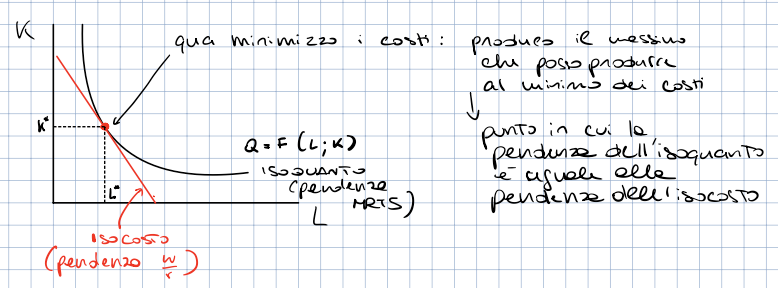 K
qua minimizzo i costi: produco il massimo
che posso produrre
al minimo dei costi
K*
punto in cui la
pendenza dell'isoquanto
è uguale alla
pendenza dell'isocosto
Q = F (L; K)
ISOQUANTO
(pendenza
MRTS)
L*
L
ISOCOSTO
(pendenza w/r)